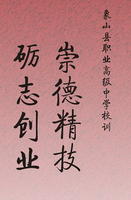 象山县职业高级中学校训
崇德精技
砺志创业